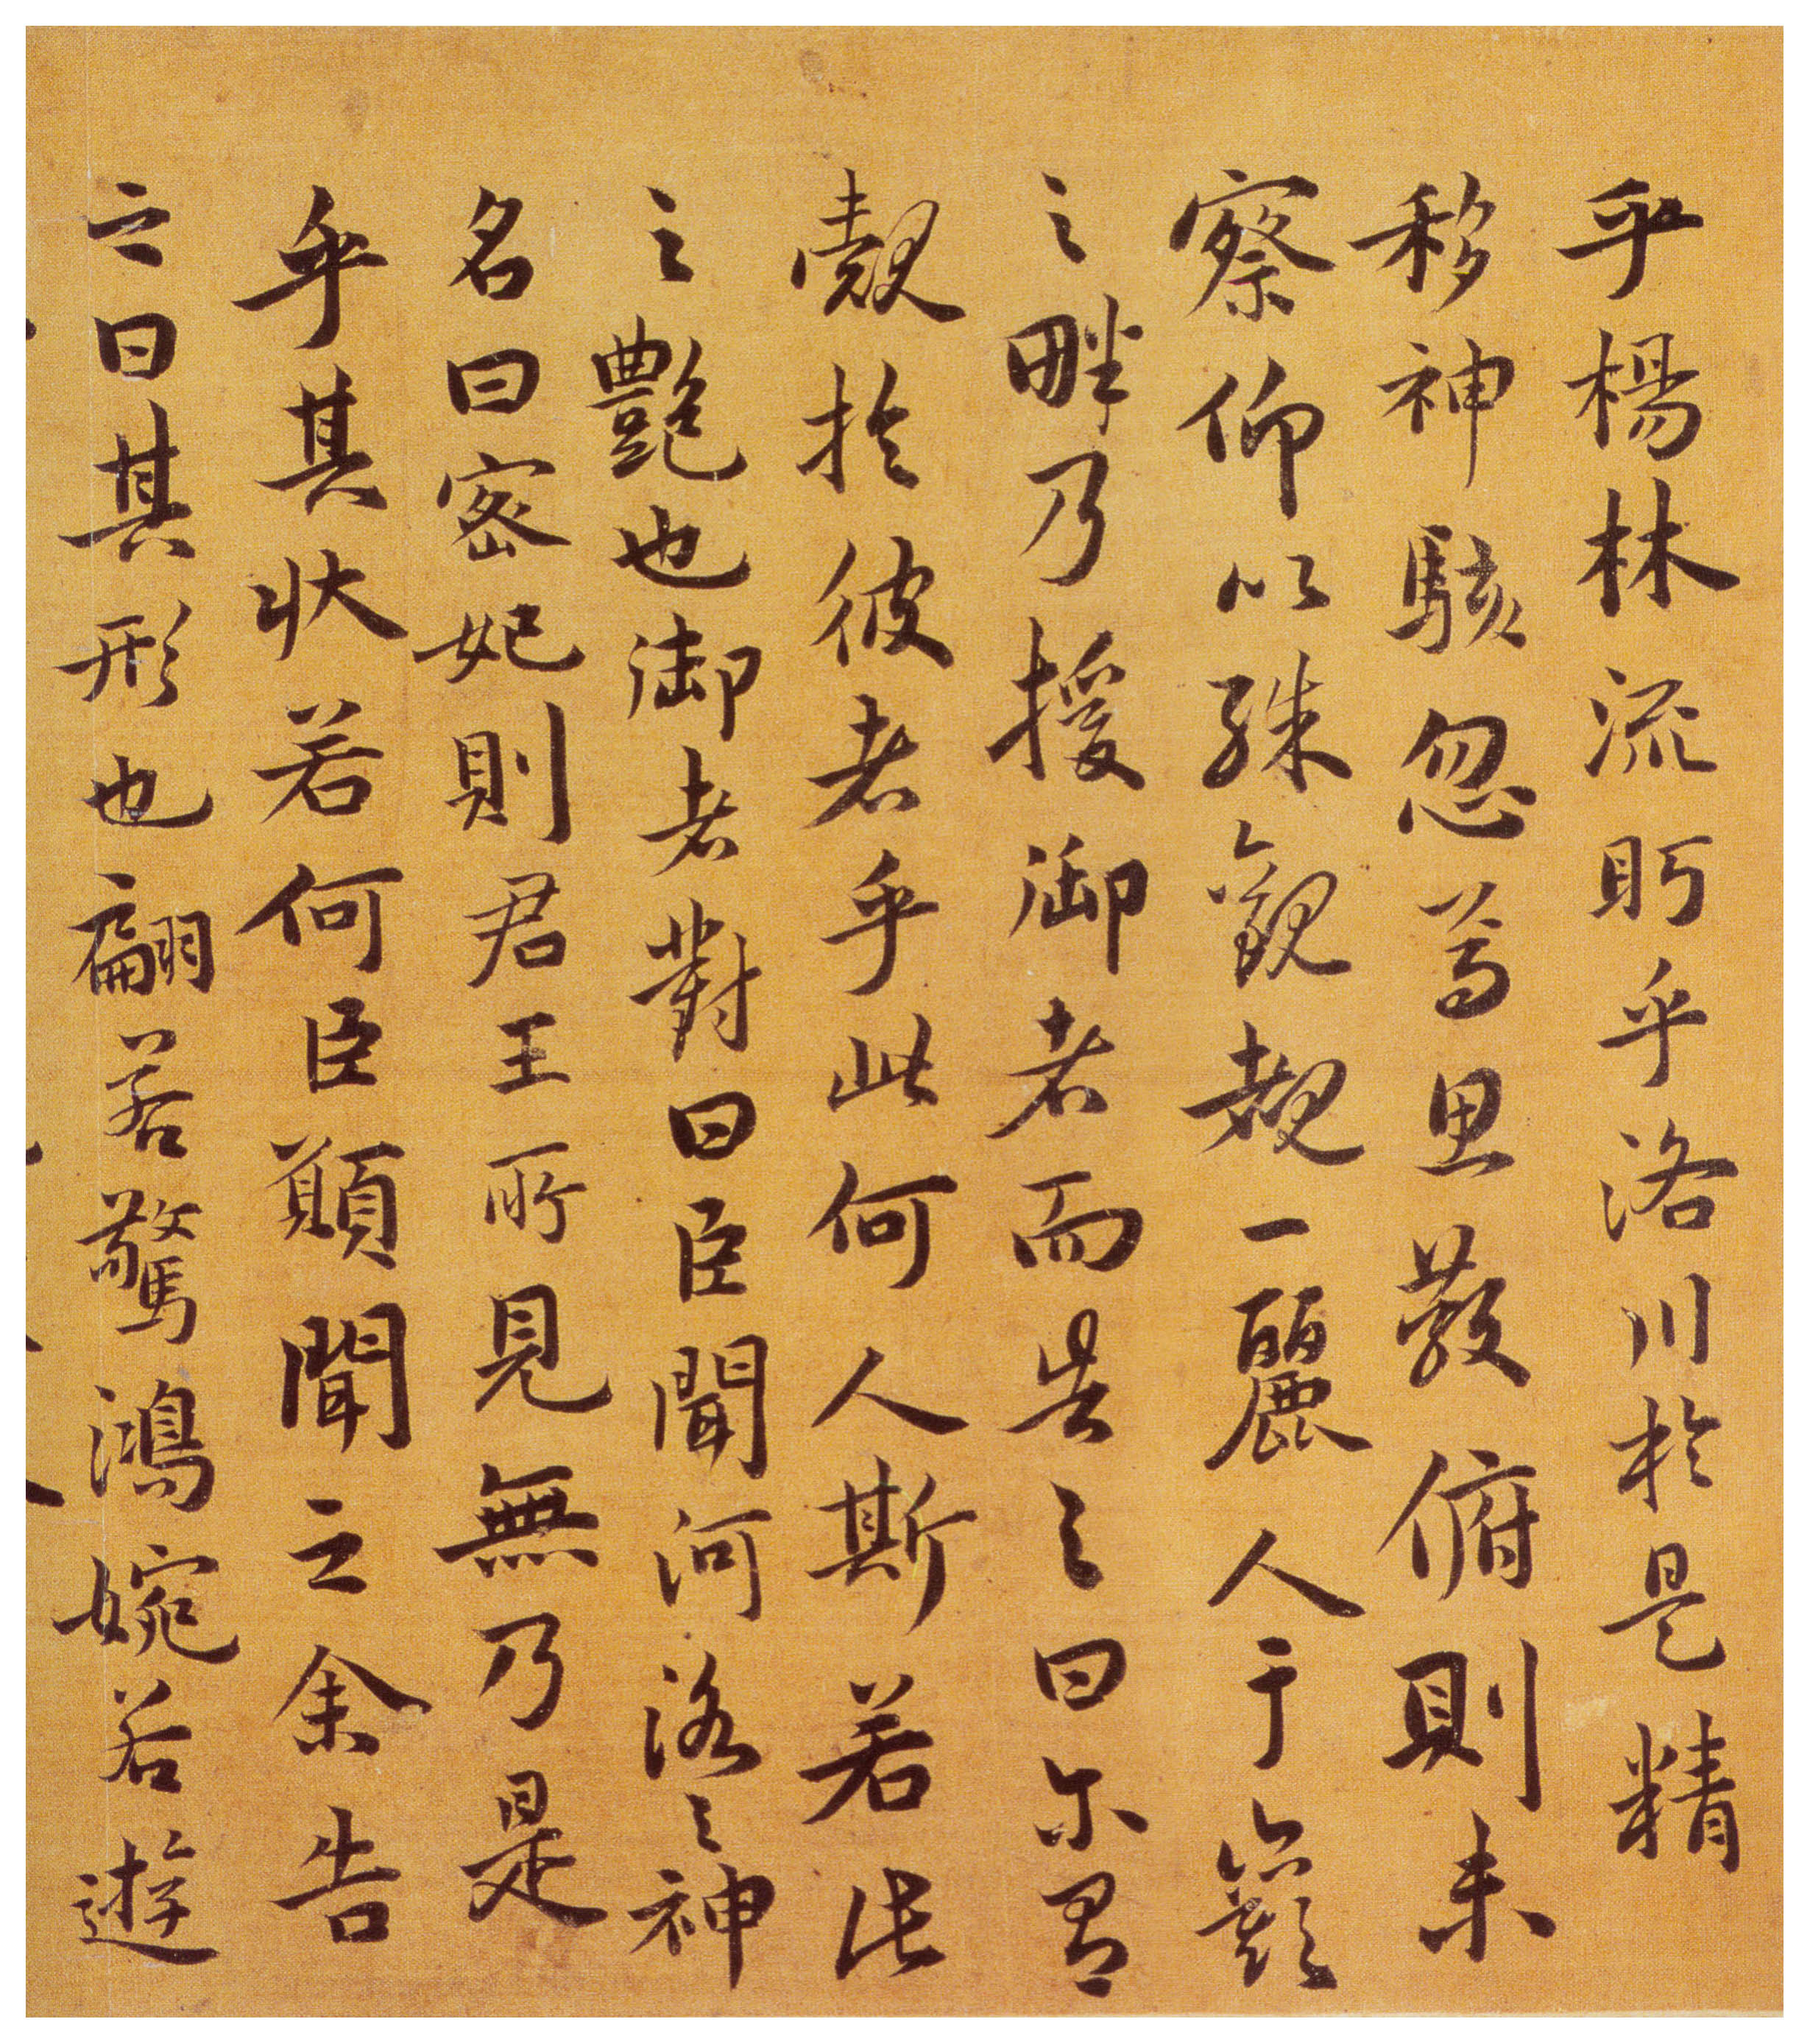 乎楊林流眄乎洛川於是精
移神駭忽焉思散俯則未
察仰以殊觀覩一麗人于巖
之畔乃援御者而告之曰尓有
覿於彼者乎此何人斯若此
之艷也御者對曰臣聞河洛之神
名曰宓妃則君王所見無乃是
乎其狀若何臣願聞之余告
之曰其形也翩若驚鴻婉若遊